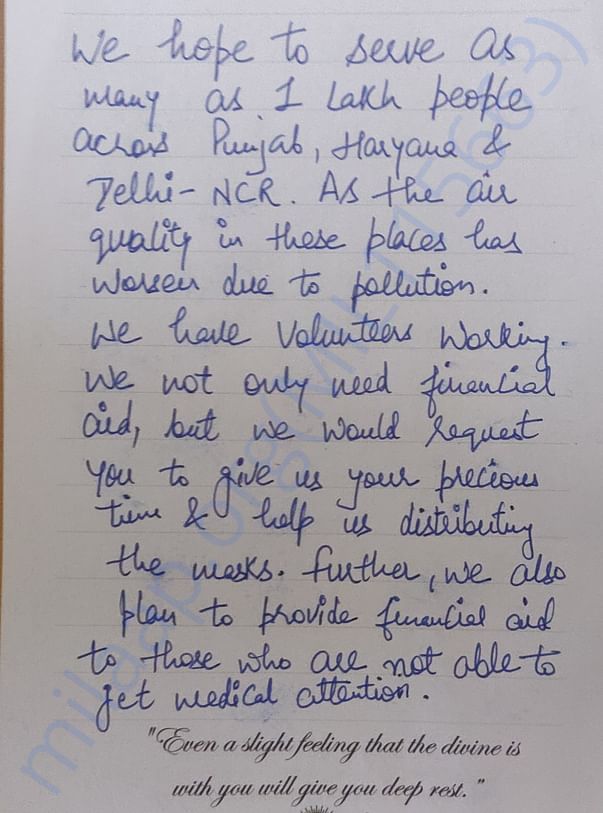 We hope to serve as
many as 1 Lakh people
across Punjab, Haryana &
Delhi-NCR. As the air
quality in these places has
worsen due to pollution.
We have volunteers working.
We not only need financial
aid, but we would request
you to give us your precious
time & help us distributing
the masks. Further, we also
plan to provide financial aid
to those who are not able to
get medical attention.
"Even a slight feeling that the divine is
with you will give you deep rest."